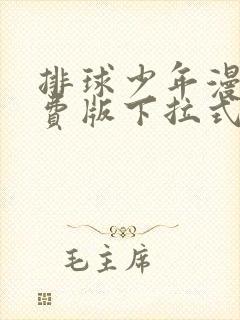 排球少年漫
费版下拉式
毛主席